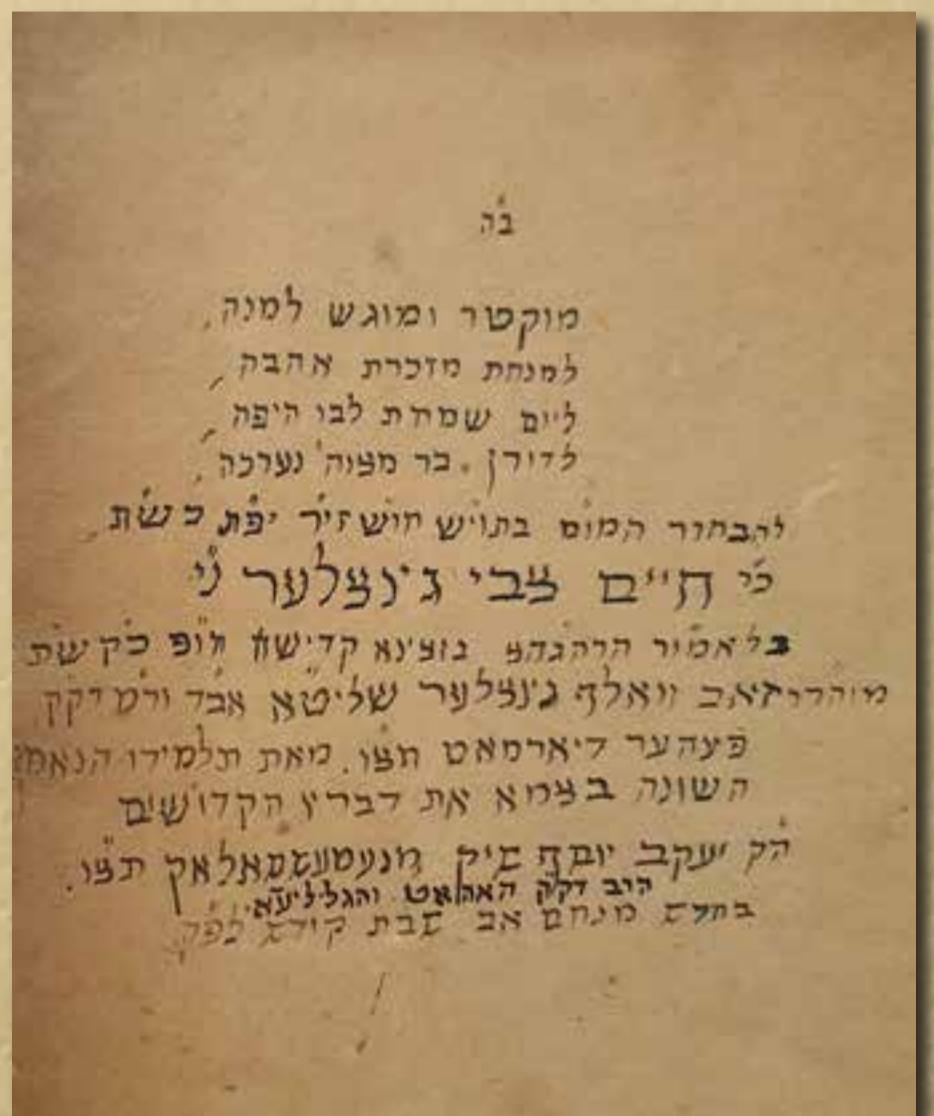 ב"ה
מוקטר ומוגש למנה,
למנחת מזכרת אהבה,
ליום שמחת לבו היפה,
לדורן בר מצוה נערכה,
להבחור המופ' בתוי"ש חו"ש זי"ר יפ"ת כש"ת
כ"י חיים צבי גינצלער נ"י
בלאמו"ר הרהגהצ בוצינא קדישא חו"פ כק"שת
מוהרר זאב וואלף גינצלער שליט"א אבד ורמ דקק
פעהער דיארמאט תצו. מאת תלמידו הנאמן
השונה בצמא את דבריו הקדושים
הק' יעקב יוסף שיק מנעמעססאלאק תצו.
הרב דקק והגליל יע"א
בחדש מנחם אב שבת קודש לפק